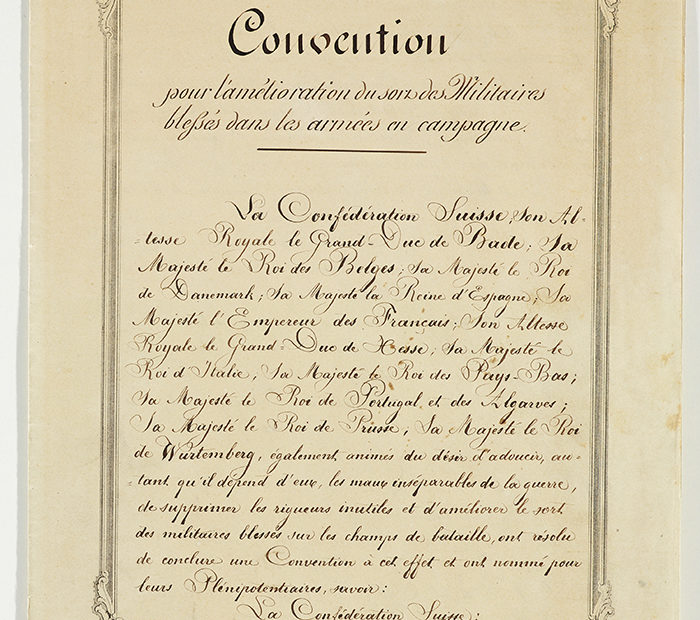 Convention
pour l'amélioration du sort des Militaires
blessés dans les armées en campagne.
La Confédération Suisse; Son Al-
-tesse Royale le Grand-Duc de Bade; Sa
Majesté le Roi des Belges; Sa Majesté le Roi
de Danemark; Sa Majesté la Reine d'Espagne; Sa
Majesté l'Empereur des Français; Son Altesse
Royale le Grand-Duc de Hesse; Sa Majesté le
Roi d'Italie; Sa Majesté le Roi des Pays-Bas;
Sa Majesté le Roi de Portugal et des Algarves;
Sa Majesté le Roi de Prusse; Sa Majesté le Roi
de Wurtemberg, également animés du désir d'adoucir, au-
tant qu'il dépend d'eux, les maux inséparables de la guerre,
de supprimer les rigueurs inutiles et d'améliorer le sort
des militaires blessés sur les champs de bataille, ont résolu
de conclure une Convention à cet effet et ont nommé pour
leurs Plénipotentiaires, savoir:
La Confédération Suisse: